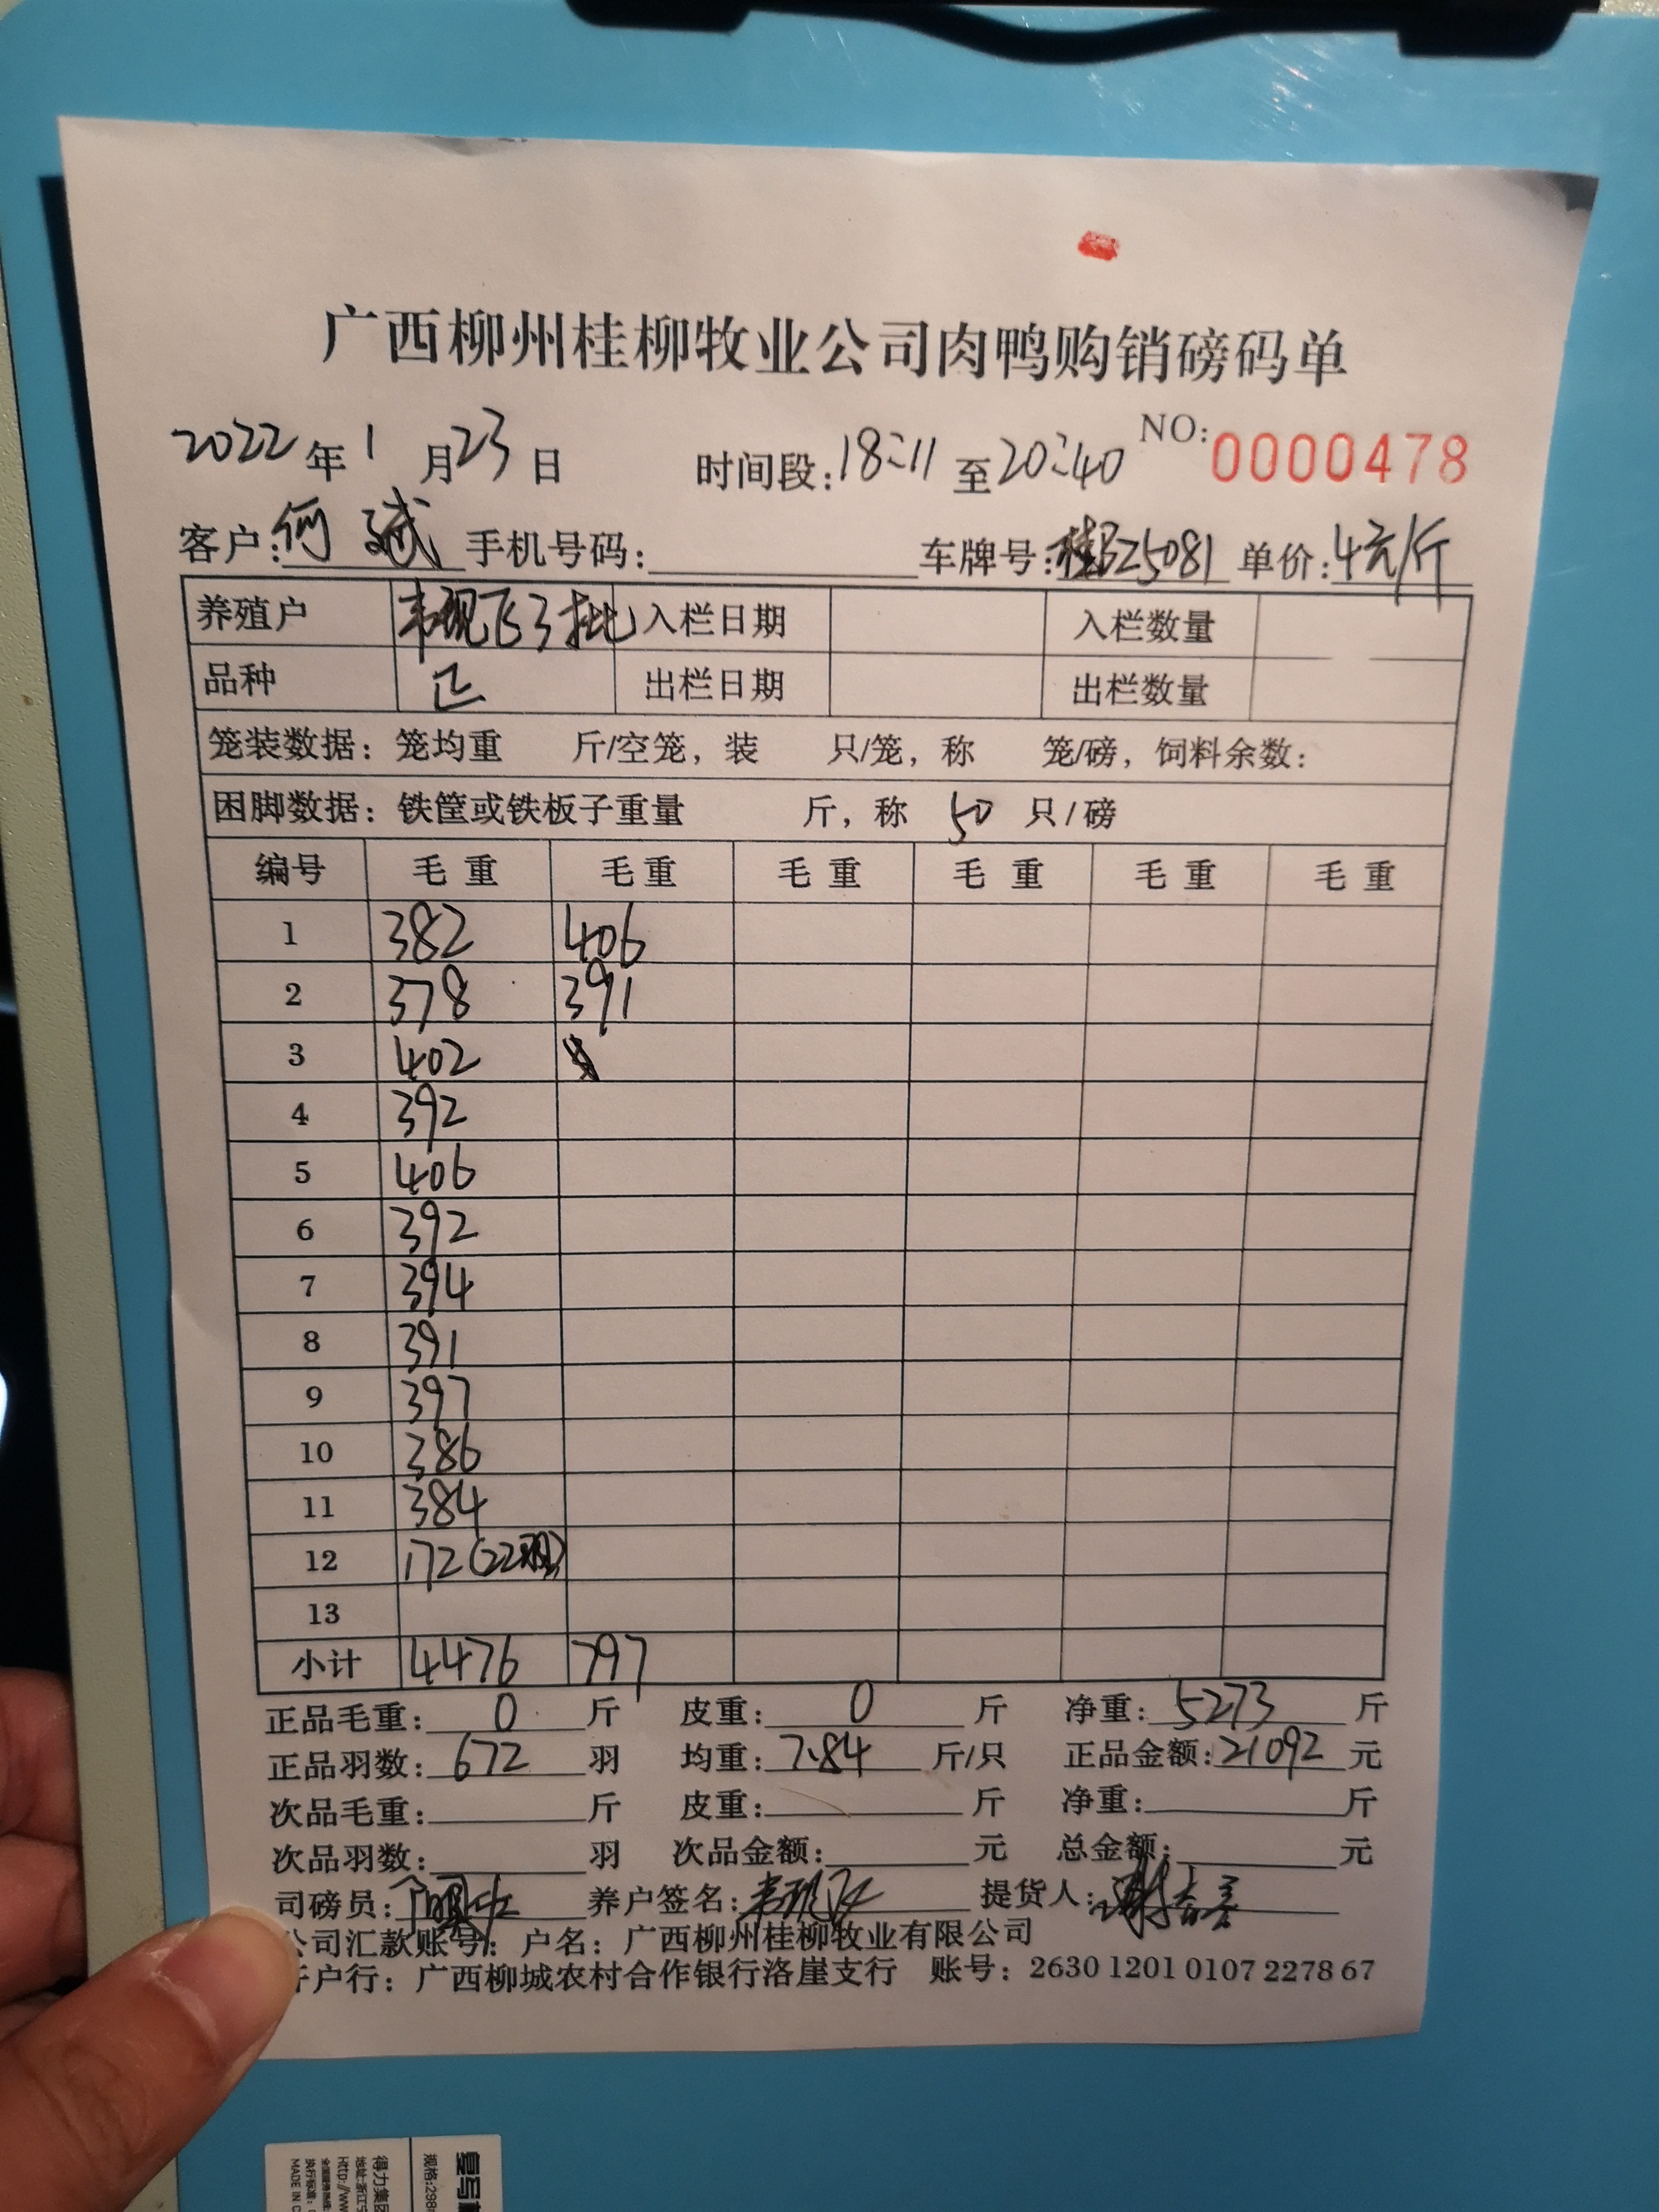 广西柳州桂柳牧业公司肉鸭购销磅码单
2022年1月23日 时间段:18:11至20:40 NO:0000478
客户:何斌 手机号码: 车牌号:桂BZ5081 单价:4元/斤
养殖户 韦现飞3批 入栏日期 入栏数量
品种 正 出栏日期 出栏数量
笼装数据:笼均重 斤/空笼,装 只/笼,称 笼/磅,饲料余数:
困脚数据:铁筐或铁板子重量 斤,称 50 只/磅
编号 毛重 毛重 毛重 毛重 毛重 毛重
1 382 406
2 378 391
3 402
4 392
5 406
6 392
7 394
8 391
9 397
10 386
11 384
12 172(22)
13
小计 4476 797
正品毛重:0斤 皮重:0斤 净重:5273斤
正品羽数:672羽 均重:7.84斤/只 正品金额:21092元
次品毛重: 斤 皮重: 斤 净重: 斤
次品羽数: 羽 次品金额: 元 总金额: 元
司磅员: 养户签名:韦现飞 提货人:
公司汇款账号:户名:广西柳州桂柳牧业有限公司
开户行:广西柳城农村合作银行洛崖支行 账号:2630 1201 0107 2278 67
得力集团
地址:浙江宁
Http://ww
MADE IN C
规格:298
复写